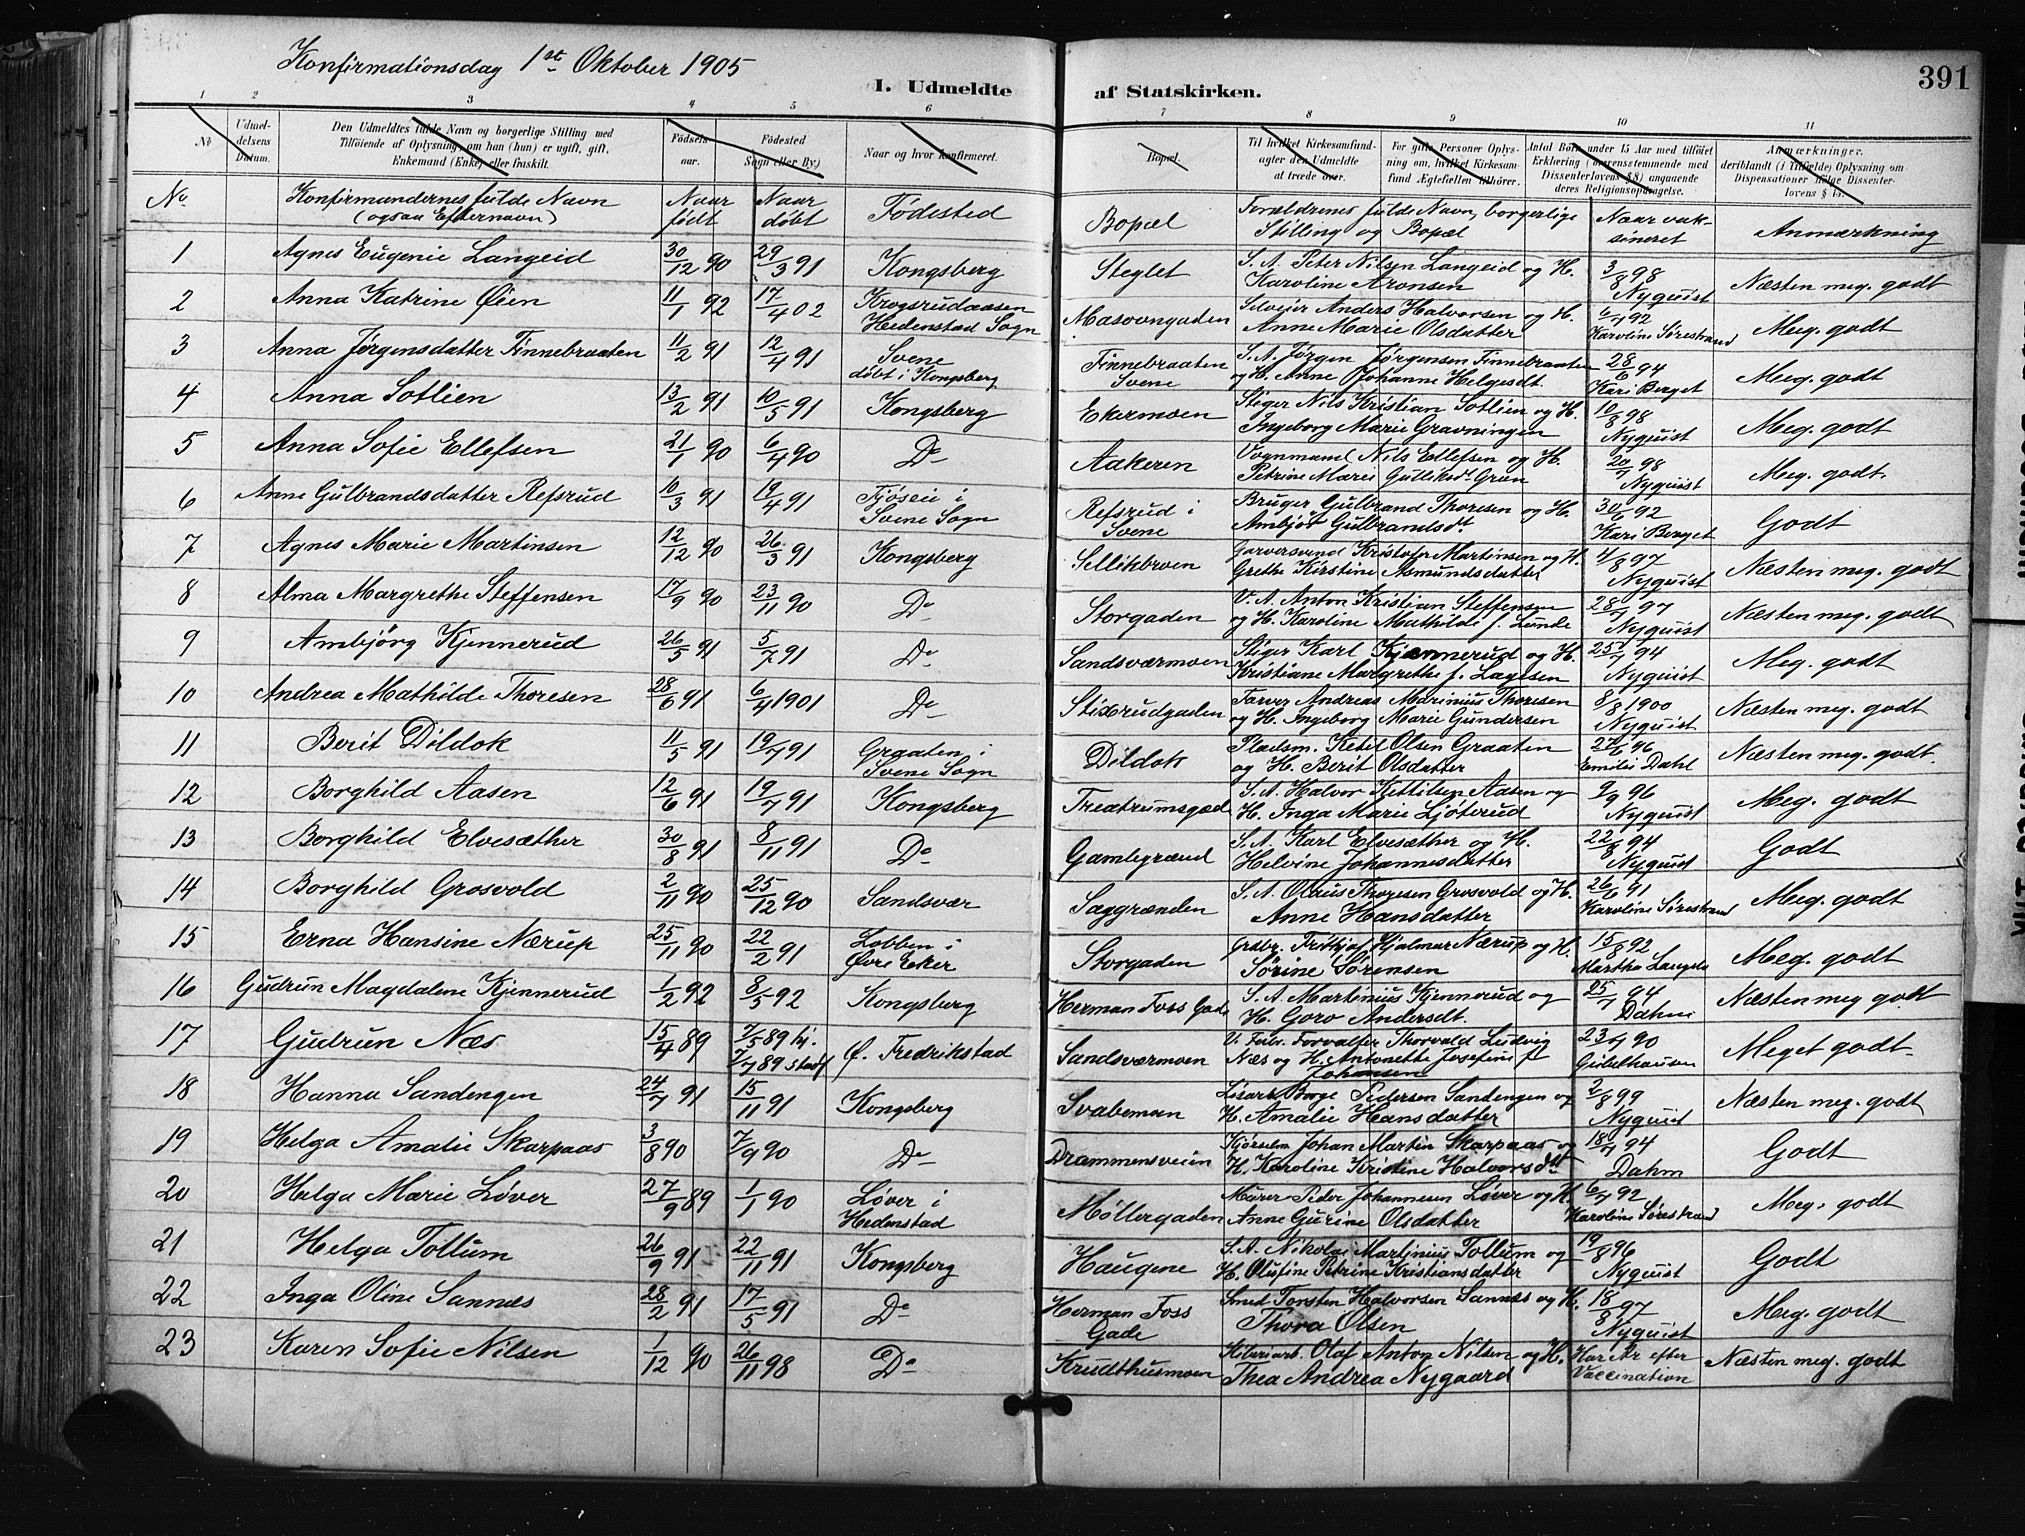 Konfirmationsdag 1ste Oktober 1905
I. Udmeldte af Statskirken.
391
1 2 3 4 5 6 7 8 9 10 11
No | Udmeldelsens Datum. | Den Udmeldtes fulde Navn og borgerlige Stilling med Tilføiende af Oplysning om han (hun) er ugift, gift, Enkemand (Enke) eller fraskilt. | Fødselsaar. | Fødested (Sogn eller By.) | Naar og hvor konfirmeret. | Bopæl. | Til hvilket Kirkesamfund agter den Udmeldte at træde over. | For gifte Personer Oplysning om, hvilket Kirkesamfund Ægtefællen tilhører. | Antal Børn under 15 Aar med tilføiet Erklæring (overensstemmende med Dissenterlovens § 8) angaaende deres Religionsopdragelse. | Anmærkninger, deriblandt (i Tilfælde) Oplysning om Dispensationer ifølge Dissenterlovens § 15.
No | Konfirmandernes fulde Navn (ogsaa Efternavn) | Naar født | Naar døbt | Fødested | Bopæl | Forældrenes fulde Navn, borgerlige Stilling og Bopæl | Naar vaksineret | Anmærkning
1 Agnes Eugenie Langeid 30/12 90 29/3 91 Kongsberg Steglet S. A. Peter Nilsen Langeid og H. Karoline Aronsen 3/8 98 Nyquist Næsten meg. godt
2 Anna Katrine Øien 11/1 92 17/4 02 Krogsrudaasen Hedenstad Sogn Masovngaden Anders Halvorsen og H. Anne Marie Olsdatter 6/7 92 Karoline Sørestrand Meg. godt
3 Anna Jørgensdatter Finnebraaten 11/2 91 12/4 91 Svene døbt i Kongsberg Finnebraaten Svene S. A. Jørgen Jørgensen Finnebraaten og H. Anne Johanne Helgesdt. 28/6 94 Kari Berget Meg. godt
4 Anna Sotlien 13/2 91 10/5 91 Kongsberg Ekermoen Stiger Nils Kristian Sotlien og H. Ingeborg Marie Gravningen 10/8 98 Nyquist Meg. godt
5 Anna Sofie Ellefsen 21/1 90 6/4 90 Do Aakeren Vognmand Nils Ellefsen og H. Petrine Marie Gulliksdt. Gren 20/7 98 Nyquist Meg. godt.
6 Anne Gulbrandsdatter Refsrud 10/3 91 19/4 91 i Svene Sogn Refsrud i Svene Bruger Gulbrand Thoresen og H. Ambjør Gulbrandsdt. 30/6 92 Kari Berget Godt
7 Agnes Marie Martinsen 12/12 90 26/3 91 Kongsberg Sellikbroen Garversvend Kristofer Martinsen og H. Grethe Kirstine Asmundsdatter 4/8 97 Nyquist Næsten meg. godt
8 Alma Margrethe Steffensen 17/9 90 23/11 90 Do Storgaden V. A. Anton Kristian Steffensen og H. Karoline Mathilde f. Lunde 28/7 97 Nyquist Næsten meg. godt
9 Ambjørg Kjennerud 26/5 91 5/7 91 Do Sandsværmoen Stiger Karl Kjennerud og H. Kristiane Margrethe f. Lagesen 25/7 94 Nyquist Meg. godt
10 Andrea Mathilde Thoresen 28/6 91 6/4 1901 Do Stixrudgaden Farver Andreas Marinius Thoresen og H. Ingeborg Marie Gundersen 8/8 1900 Nyquist Næsten meg. godt
11 Berit Dildok 11/5 91 19/7 91 Graaten i Svene Sogn Dildok Pladsm. Ketil Olsen Graaten og H. Berit Olsdatter 27/6 96 Emilie Dahl Næsten meg. godt.
12 Borghild Aasen 12/6 91 19/7 91 Kongsberg Treatrumsgad S. A. Halvor Kittilsen Aasen og H. Inga Marie Ljøterud 9/9 96 Nyquist Meg. godt
13 Borghild Elvesæther 30/8 91 8/11 91 Do Gamlegrænd S. A. Karl Elvesæther og H. Helvine Johannesdatter 22/8 94 Nyquist Godt
14 Borghild Grosvold 2/11 90 25/12 90 Sandsvær Saggrænden S. A. Olaus Thoresen Grosvold og H. Anne Hansdatter 26/6 91 Karoline Sørestrand Meg. godt
15 Erna Hansine Nærup 25/11 90 22/2 91 Lobben i Øvre Eker Storgaden Fritjof Hjalmar Nærup og H. Sørine Sørensen 15/8 92 Martha Meg. godt
16 Gudrun Magdalene Kjennerud 1/2 92 8/5 92 Kongsberg Herman Foss Gade S. A. Martinius Kjennerud og H. Goro Andersdt. 25/7 94 Dahm Næsten meg godt
17 Gudrun Næs 15/4 89 7/5 89 hj. 7/7 89 stadf Ø. Fredrikstad Sandsværmoen V. Forvalter Thorvald Ludvig Næs og H. Antonette Josefine f Johansen 23/7 90 Meget godt.
18 Hanna Sandengen 24/7 91 15/11 91 Kongsberg Svabeman Løsarb Børge Pedersen Sandengen og H. Amalie Hansdatter 2/8 99 Nyquist Næsten meg. godt
19 Helga Amalie Skarpaas 3/8 90 7/9 90 Do Drammensveien Kjørselm Johan Martin Skarpaas og H. Karoline Kristine Halvorsdt. 18/7 94 Dahm Godt
20 Helga Marie Løver 27/9 89 1/1 90 Løver i Hedenstad Møllergaden Murer Peder Johannesen Løver og H. Anne Gurine Olsdatter 6/7 92 Karoline Sørestrand Meg. godt
21 Helga Tollum 26/9 91 22/11 91 Kongsberg Haugene S. A. Nikolai Martinius Tollum og H. Olufine Petrine Kristiansdatter 19/8 96 Nyquist Godt
22 Inga Oline Sannæs 28/2 91 17/5 91 Do Herman Foss Gade Smed Torsten Halvorsen Sannæs og H. Thora Olsen 18/8 97 Nyquist Meg. godt
23 Karen Sofie Nilsen 1/12 90 26/11 98 Do Krudthusmoen Olaf Anton Nilsen og H. Thea Andrea Nygaard Har Ar efter Vaccination Næsten meg. godt